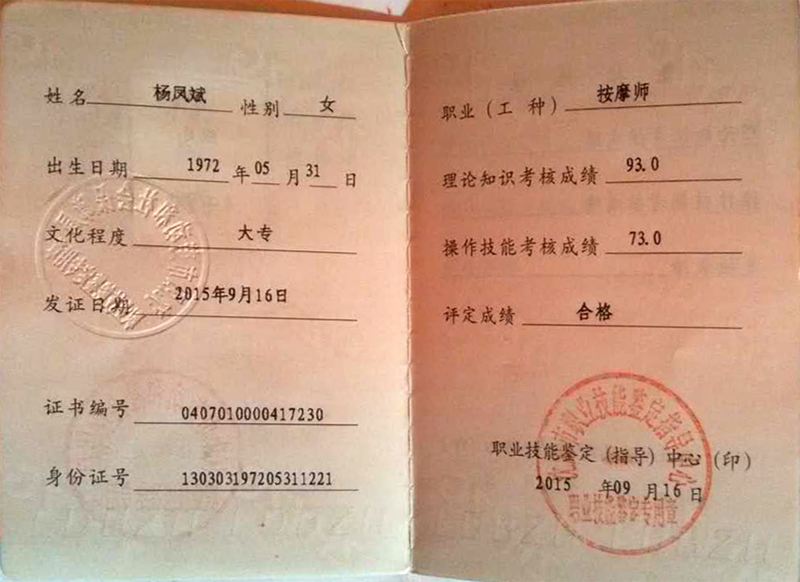 姓名 杨凤斌 性别 女
出生日期 1972 年 05 月 31 日
文化程度 大专
发证日期 2015年9月16日
证书编号 0407010000417230
身份证号 130303197205311221
职业（工 种） 按摩师
理论知识考核成绩 93.0
操作技能考核成绩 73.0
评定成绩 合格
职业技能鉴定（指导）中心（印）
2015 年09 月16日
职业技能鉴定指导中心
职业技能鉴定专用章